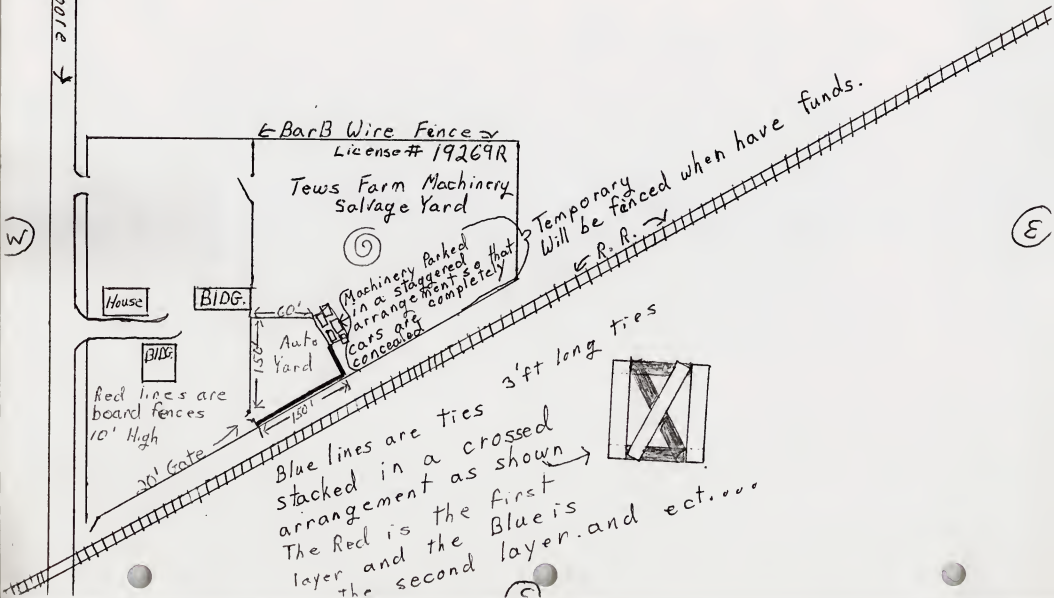 ←BarB Wire Fence→
License# 19269R
Tews Farm Machinery
Salvage Yard
Machinery Parked
in a staggered
arrangement so that
cars are completely
concealed
Temporary
Will be fenced when have funds.
← R.R. →
W
E
House
BlDG.
BlDG.
60'
125'
Auto
Yard
150'
Red lines are
board fences
10' High
20' Gate
3'ft long ties
Blue lines are ties
stacked in a crossed
arrangement as shown
The Red is the first
layer and the Blue is
the second layer.and ect....
S